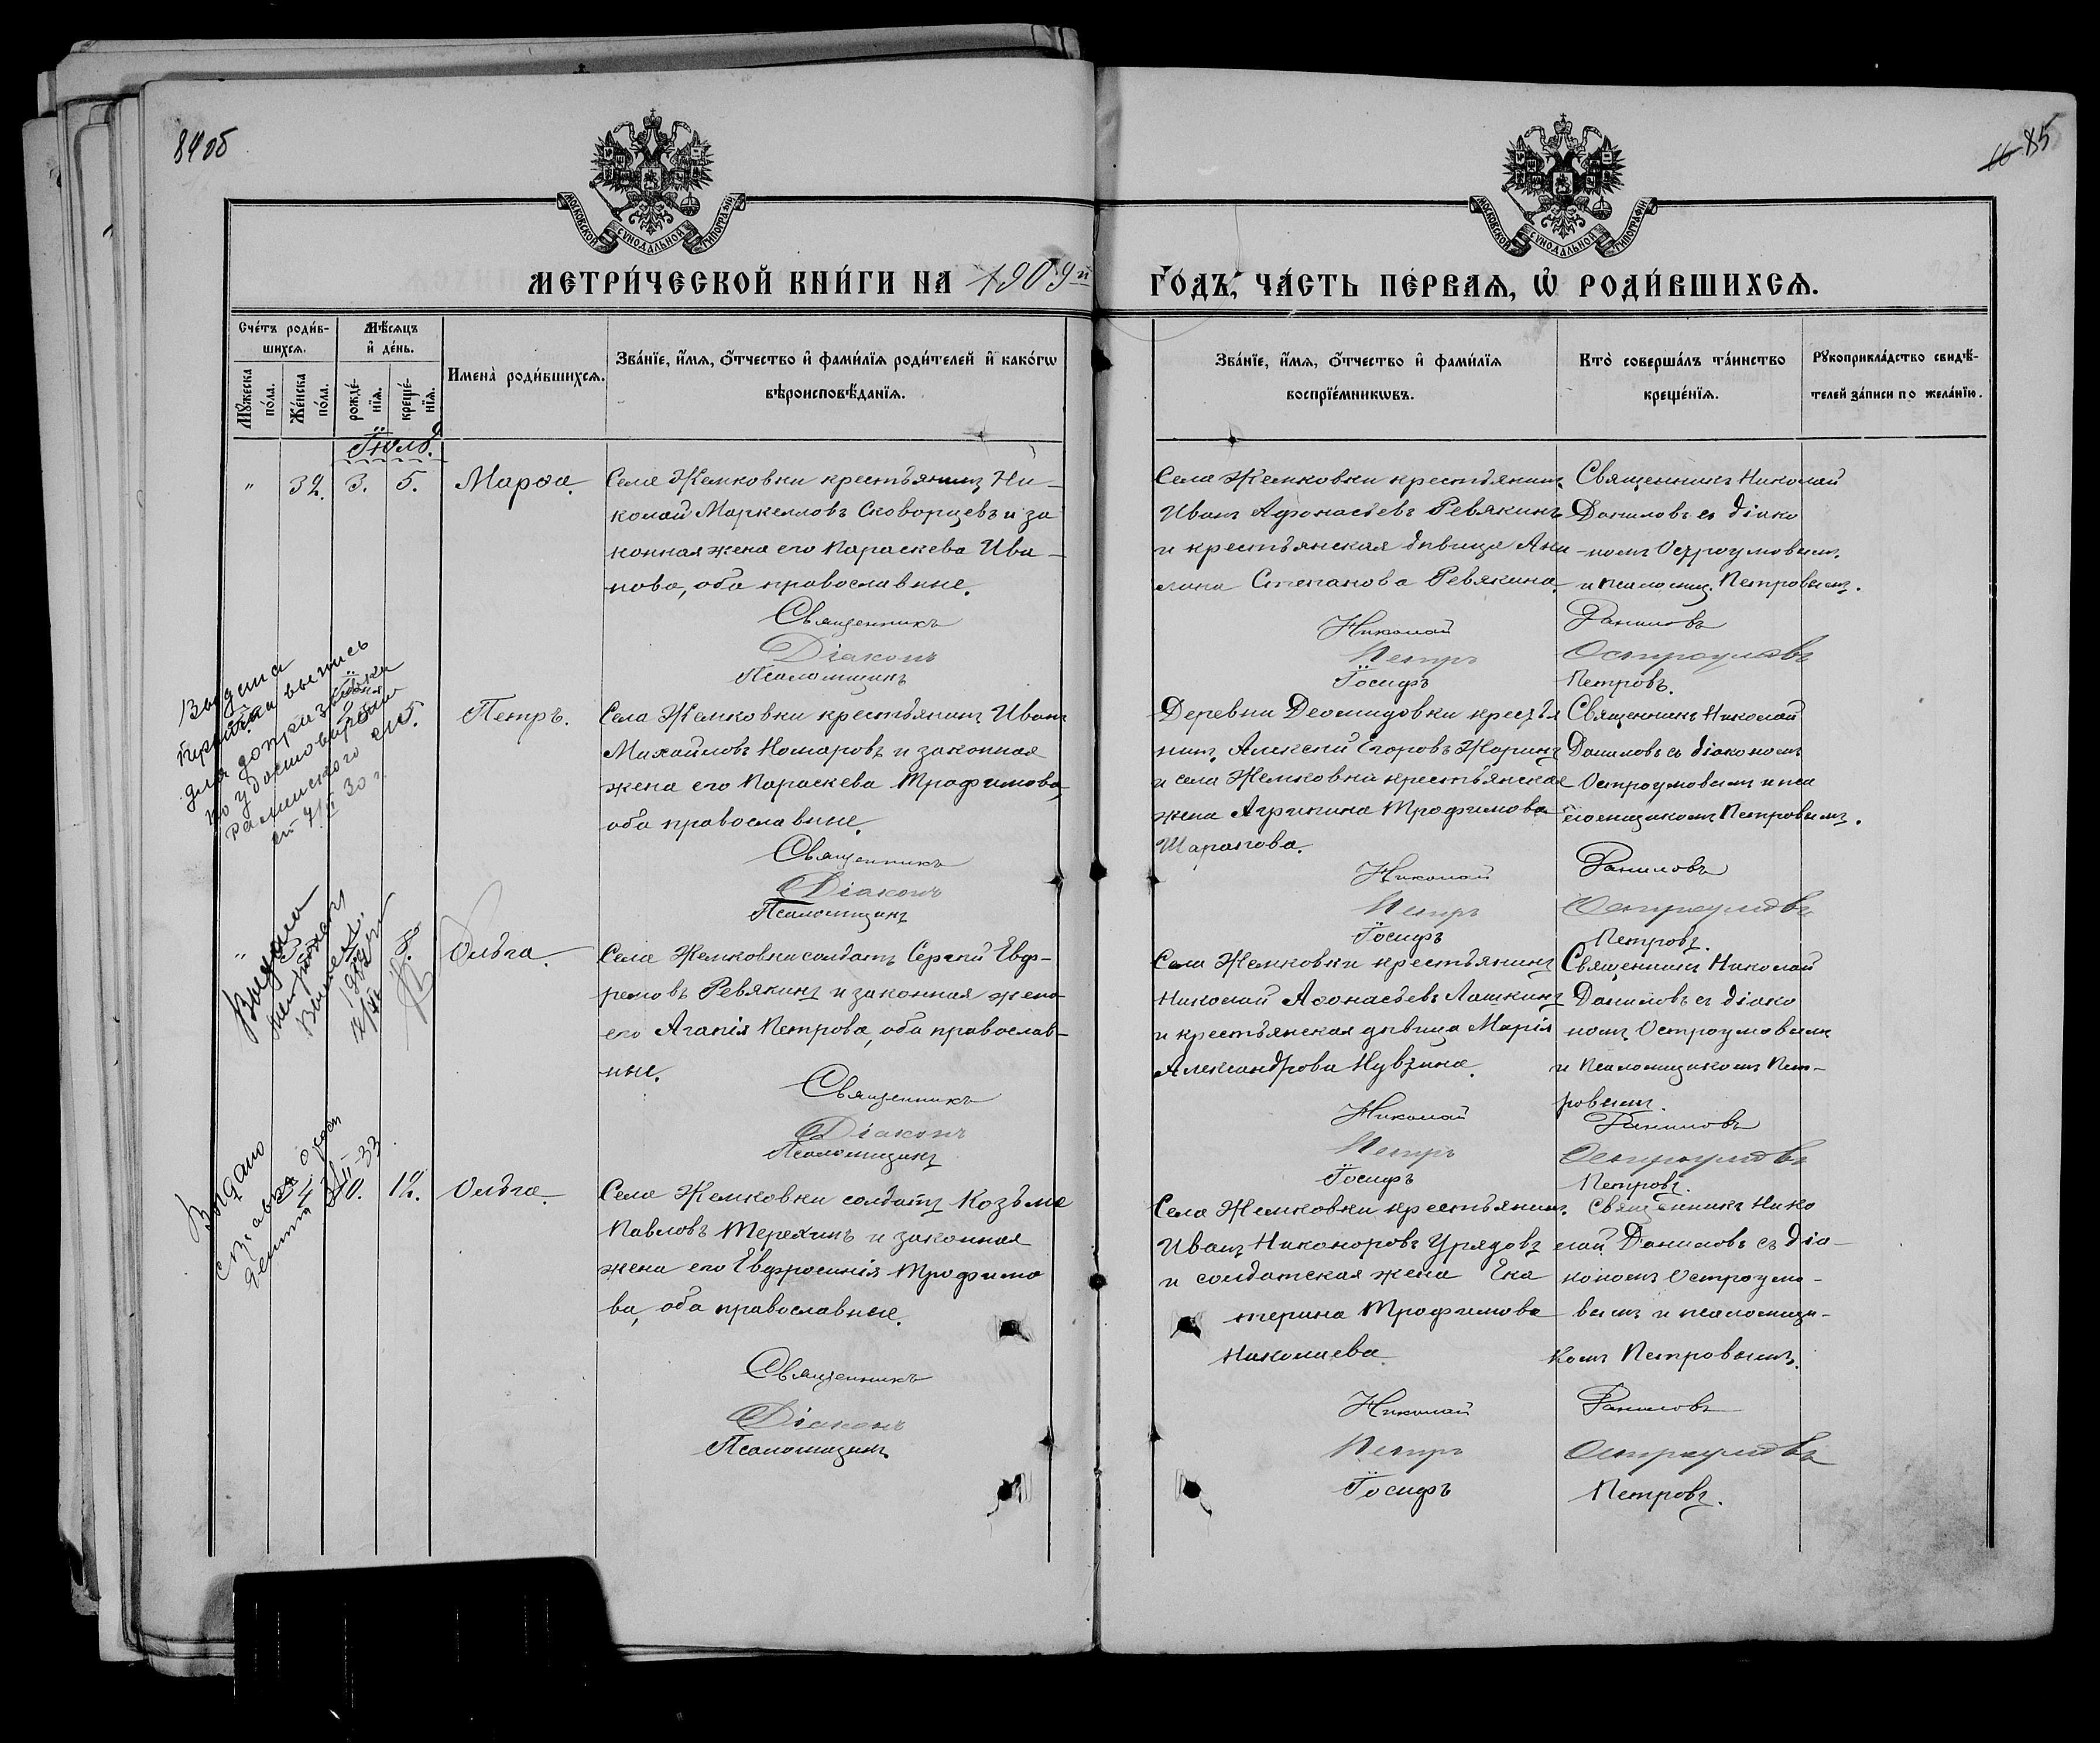 84 об
85
МОСКОВСКОЙ СѴНОДАЛЬНОЙ ТИПОГРАФІИ
МОСКОВСКОЙ СѴНОДАЛЬНОЙ ТИПОГРАФІИ
МЕТРИ́ЧЕСКОЙ КНИ́ГИ НА 1909й
ГО́ДЪ, ЧА́СТЬ ПЕ́РВАѦ, Ѡ҆ РОДИ́ВШИХСѦ.
Сче́тъ роди́в-
шихсѧ.
Мꙋ́жеска
по́ла.
Же́нска
по́ла.
Мѣ́сѧцъ
и҆ де́нь.
рожде́-
нїѧ.
креще́-
нїѧ.
Имена̀ роди́вшихсѧ.
Зва́нїе, и҆́мѧ, ѻ҆́тчество и҆ фами́лїѧ роди́телей и҆ како́гѡ
вѣроисповѣ́данїѧ.
Зва́нїе, и҆́мѧ, ѻ҆́тчество и҆ фами́лїѧ
воспрїе́мникѡвъ.
Кто̀ соверша́лъ та́инство
креще́нїѧ.
Рꙋкоприкла́дство свидѣ́-
телей за́писи по жела́нїю.
Іюль.
" 32. 3. 5. Марѳа.
Села Жемковки крестьянинъ Ни-
колай Маркелловъ Скворцевъ и за
конная жена его Параскева Ива-
нова, оба православные.
Священникъ
Діаконъ
Псаломщикъ
Села Жемковки крестьянинъ
Иванъ Афонасьевъ Ревякинъ
и крестьянская дѣвица Аки
лина Степанова Ревякина.
Николай
Петръ
Іосифъ
Священникъ Николай
Даниловъ съ діако
-номъ Остроумовымъ
и псаломщ. Петровымъ.
Даниловъ
Остроумовъ
Петровъ.
Выдана
выпись
5. Петръ.
Села Жемковки крестьянинъ Иванъ
Михайловъ Комаровъ и законная
жена его Параскева Трофимова,
оба православные.
Священникъ
Діаконъ
Псаломщикъ
Деревни Деомидовки крестья
нинъ Алексѣй Егоровъ Жаринъ
и села Жемковки крестьянская
жена Агрипина Трофимова
Шарапова.
Николай
Петръ
Іосифъ
Священникъ Николай
Даниловъ съ діакономъ
Остроумовымъ и пса
ломщикомъ Петровымъ.
Даниловъ
Остроумовъ
Петровъ.
Выдано
" 8. Ольга.
Села Жемковки солдатъ Сергѣй Евф-
ремовъ Ревякинъ и законная жена
его Агапія Петрова, оба православ-
ные.
Священникъ
Діаконъ
Псаломщикъ
Села Жемковки крестьянинъ
Николай Аѳонасьевъ Лашкинъ
и крестьянская дѣвица Марія
Александрова Нувзина.
Николай
Петръ
Іосифъ
Священникъ Николай
Даниловъ съ діако
номъ Остроумовымъ
и псаломщикомъ Пет-
ровымъ.
Даниловъ
Остроумовъ
Петровъ.
Выдано
10. 12. Ольга.
Села Жемковки солдатъ Козьма
Павловъ Терехинъ и законная
жена его Евфросинія Трофимо
ва, оба православные.
Священникъ
Діаконъ
Псаломщикъ
Села Жемковки крестьянинъ
Иванъ Никоноровъ Урядовъ
и солдатская жена Ека
терина Трофимова
Николаева
Николай
Петръ
Іосифъ
Священникъ Нико
лай Даниловъ съ діа-
кономъ Остроумо-
вымъ и псаломщи-
комъ Петровымъ.
Даниловъ
Остроумовъ
Петровъ.